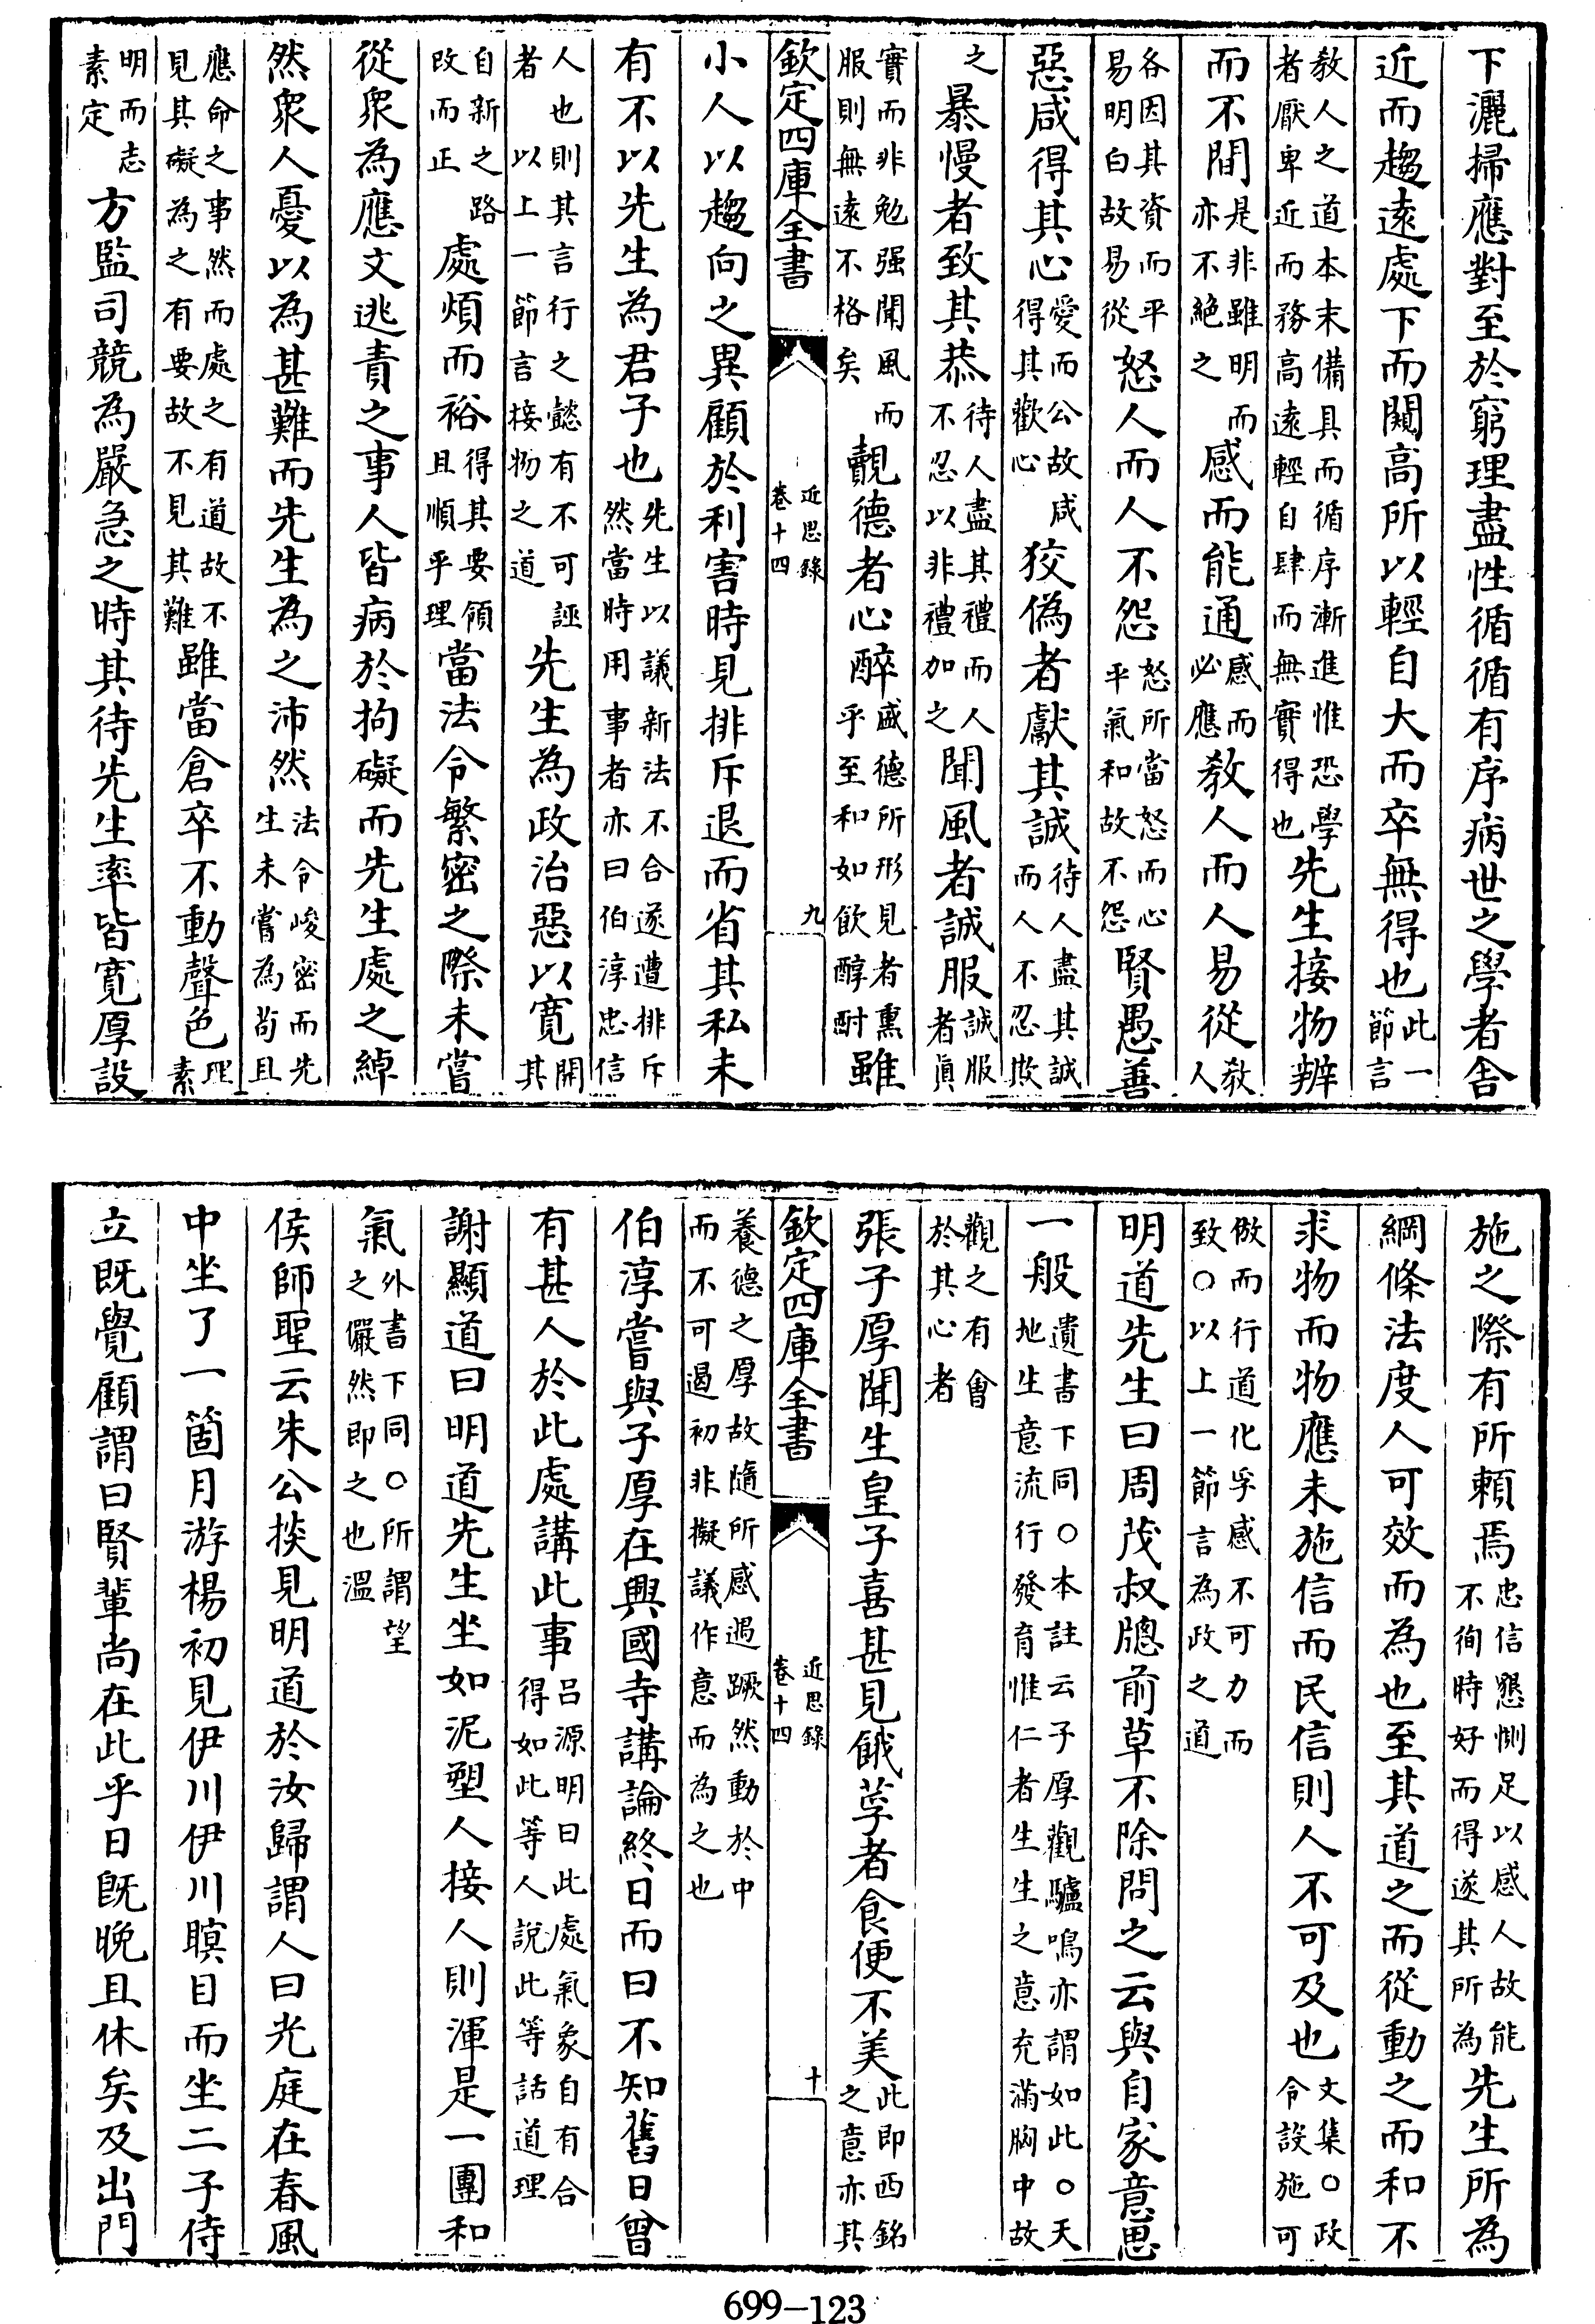 下灑掃應對至於窮理盡性循循有序病世之學者舍
近而趨遠處下而闚高所以輕自大而卒無得也此一節言
教人之道本末備具而循序漸進惟恐學者厭卑近而務高遠輕自肆而無實得也先生接物辨
而不間是非雖明而亦不絶之感而能通感而必應教人而人易從教人
各因其資而平易明白故易從怒人而人不怨怒所當怒而心平氣和故不怨賢愚善
惡咸得其心愛而公故咸得其歡心狡偽者獻其誠待人盡其誠而人不忍欺
之暴慢者致其恭待人盡其禮而人不忍以非禮加之聞風者誠服誠服者眞
實而非勉强聞風而服則無遠不格矣覿德者心醉盛德所形見者熏乎至和如飲醇酎雖
欽定四庫全書
近思錄
卷十四
九
小人以趨向之異顧於利害時見排斥退而省其私未
有不以先生為君子也先生以議新法不合遂遭排斥然當時用事者亦曰伯淳忠信
人也則其言行之懿有不可誣者以上一節言接物之道先生為政治惡以寛開其
自新之路攺而正處煩而裕得其要領且順乎理當法令繁密之際未嘗
從衆為應文逃責之事人皆病於拘礙而先生處之綽
然衆人憂以為甚難而先生為之沛然法令峻密而先生未嘗為苟且
應命之事然而處之有道故不見其礙為之有要故不見其難雖當倉卒不動聲色理素
明而志素定方監司競為嚴急之時其待先生率皆寛厚設
施之際有所賴焉忠信懇惻足以感人故能不徇時好而得遂其所為先生所為
綱條法度人可效而為也至其道之而從動之而和不
求物而物應未施信而民信則人不可及也文集○政令設施可
倣而行道化孚感不可力而致○以上一節言為政之道
明道先生曰周茂叔牕前草不除問之云與自家意思
一般遺書下同○本註云子厚觀驢鳴亦謂如此○天地生意流行發育惟仁者生生之意充滿胸中故
觀之有會於其心者
張子厚聞生皇子喜甚見餓莩者食便不美此即西銘之意亦其
欽定四庫全書
近思錄
卷十四
十
養德之厚故隨所感遇蹶然動於中而不可遏初非擬議作意而為之也
伯淳嘗與子厚在興國寺講論終日而曰不知舊日曾
有甚人於此處講此事呂源明曰此處氣象自有合得如此等人說此等話道理
謝顯道曰明道先生坐如泥塑人接人則渾是一團和
氣外書下同○所謂望之儼然即之也溫
侯師聖云朱公掞見明道於汝歸謂人曰光庭在春風
中坐了一箇月游楊初見伊川伊川瞑目而坐二子侍
立既覺顧謂曰賢輩尚在此乎日既晚且休矣及出門
699-123